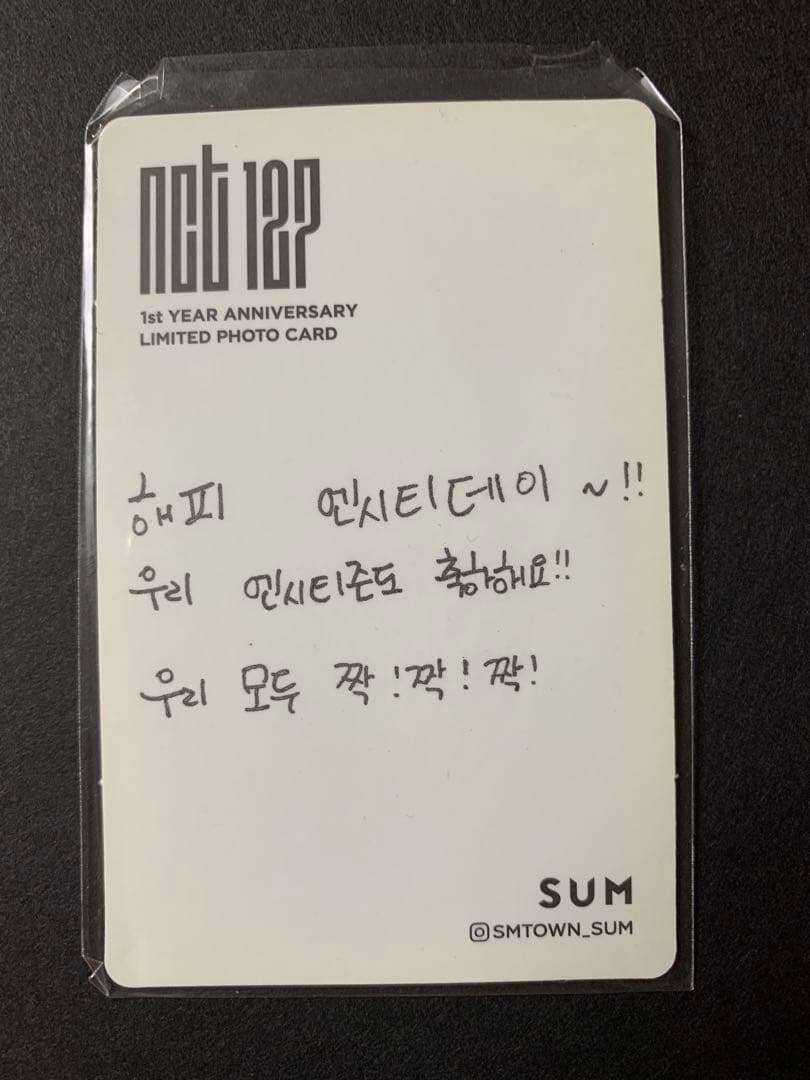 nct 127
1st YEAR ANNIVERSARY
LIMITED PHOTO CARD
해피 엔시티데이 ~!!
우리 엔시티존도 축하해요!!
우리 모두 짝!짝!짝!
SUM
SMTOWN_SUM